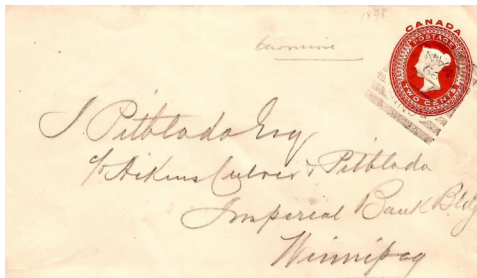 1898
carmine
CANADA
POSTAGE
TWO CENTS
J Pitblado Esq
c/o Aikins Culver & Pitblado
Imperial Bank Bldg
Winnipeg